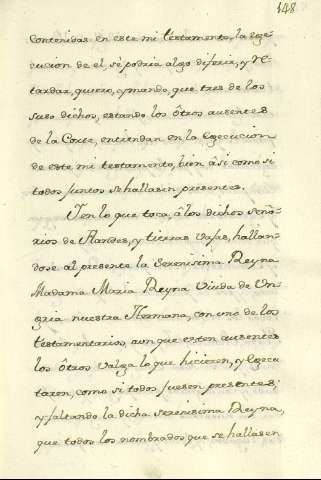 148
contenidas en este mi testamento, la ege-
cucion de el, sè podria algo diferir, y re-
tardar, quiero, y mando, que tres de los
suso dichos, estando los ôtros ausentes
de la Corte, entiendan en la Egecucion
de este mi testamento, bien âsi como si
todos juntos se hallasen presentes.
Y en lo que toca, â los dichos seño-
rios de Flandes, y tierras vajas, hallan-
dose al presente la Serenisima Reyna
Madama Maria Reyna Viuda de Un-
gria nuestra Hermana, con uno de los
testamentarios, aunque esten ausentes
los ôtros valga lo que hicieren, y Egecu-
taren, como si todos fuesen presentes;
y faltando la dicha Serenisima Reyna,
que todos los nombrados que se hallasen